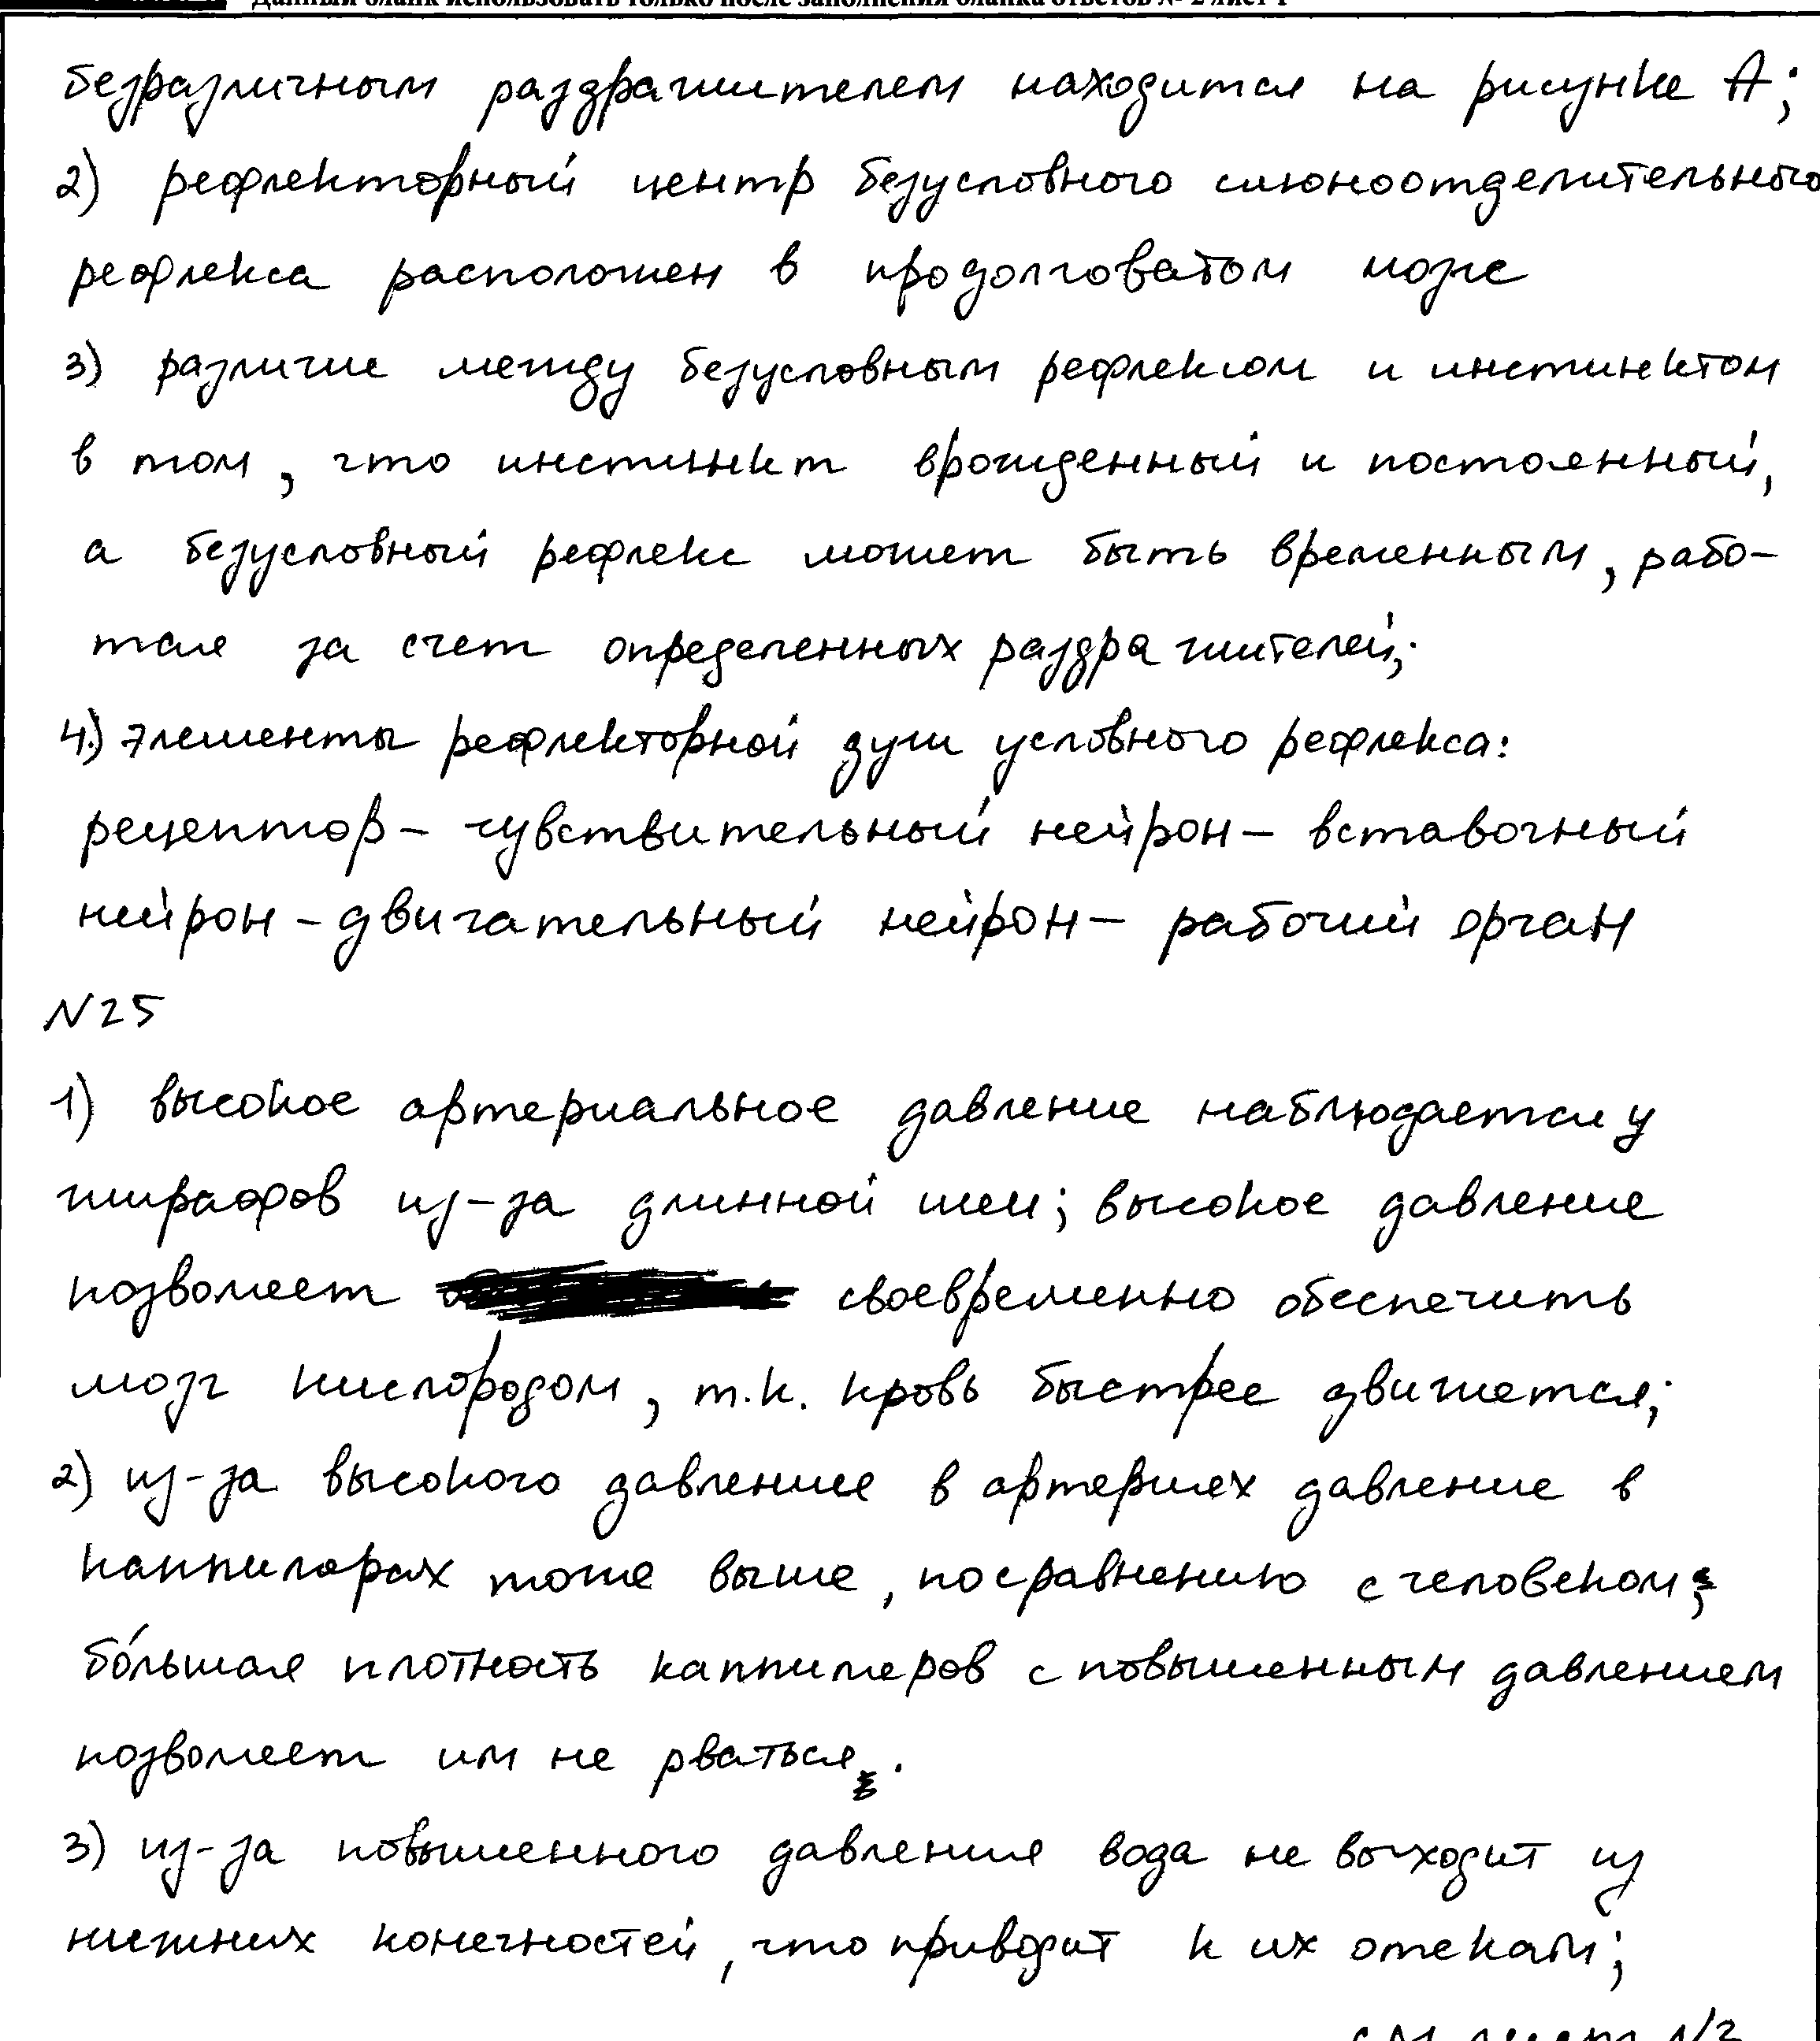 Данный бланк использовать только после заполнения бланка ответов № 2 лист 1
безразличным раздражителем находится на рисунке А;
2) рефлекторный центр безусловного слюноотделительного
рефлекса расположен в продолговатом мозге
3) различие между безусловным рефлексом и инстинктом
в том, что инстинкт врожденный и постоянный,
а безусловный рефлекс может быть временным, рабо-
тая за счет определенных раздражителей;
4.) элементы рефлекторной дуги условного рефлекса:
рецептор – чувствительный нейрон – вставочный
нейрон – двигательный нейрон – рабочий орган
N25
1) высокое артериальное давление наблюдается у
жирафов из-за длинной шеи; высокое давление
позволяет своевременно обеспечить
мозг кислородом, т.к. кровь быстрее движется;
2) из-за высокого давления в артериях давление в
каппилярах тоже выше, по сравнению с человеком;
бо́льшая плотность каппиляров с повышенным давлением
позволяет им не рваться.
3) из-за повышенного давления вода не выходит из
нижних конечностей, что приводит к их отекам;
см лист N3